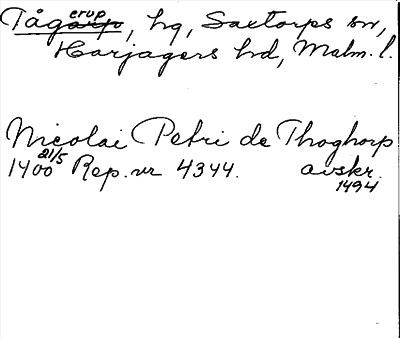 Tågarp erup, hg, Saxtorps sn,
Harjagers hd, Malm. l.
Nicolai Petri de Thoghorp
1400 21/5 Rep. nr 4344. avskr.
1494